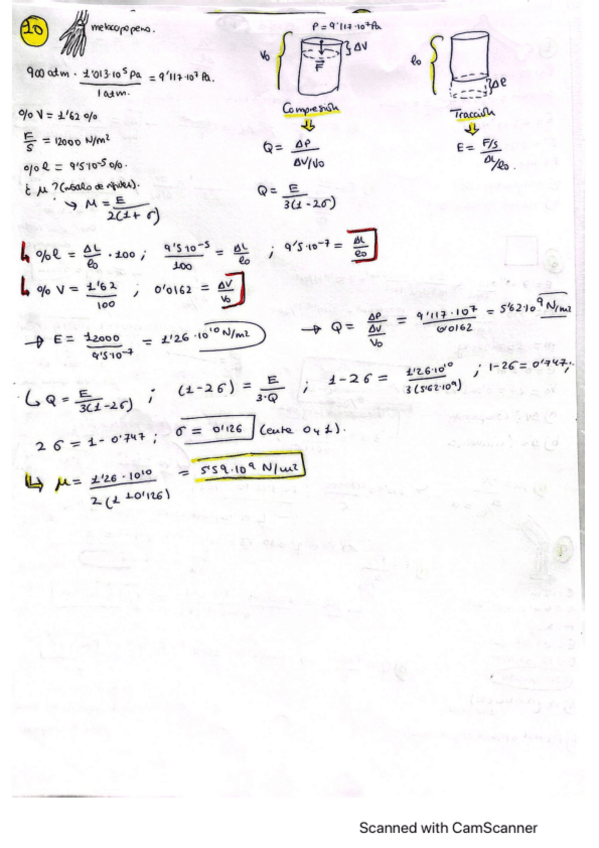 10 metacarpeno. P = 9'117·10⁷ Pa
V₀ ΔV F l₀ Δl
900 atm · 1'013·10⁵ Pa / 1 atm = 9'117·10⁷ Pa.
Compresión Tracción
% V = 1'62 %
F/S = 12000 N/m² Q = ΔP / ΔV/V₀ E = F/S / ΔL/l₀
% l = 9'5·10⁻⁵ %.
¿ μ ? Q = E / 3(1-2σ)
↳ μ = E / 2(1+σ)
↳ % l = ΔL/l₀ · 100 ; 9'5·10⁻⁵ / 100 = ΔL/l₀ ; 9'5·10⁻⁷ = ΔL/l₀
↳ % V = 1'62 / 100 ; 0'0162 = ΔV/V₀
→ E = 12000 / 9'5·10⁻⁷ = 1'26·10¹⁰ N/m² → Q = ΔP / ΔV/V₀ = 9'117·10⁷ / 0'0162 = 5'62·10⁹ N/m²
↳ Q = E / 3(1-2σ) ; (1-2σ) = E / 3·Q ; 1-2σ = 1'26·10¹⁰ / 3(5'62·10⁹) ; 1-2σ = 0'747;
2σ = 1 - 0'747 ; σ = 0'126 (entre 0 y 1).
↳ μ = 1'26·10¹⁰ / 2(1+0'126) = 5'59·10⁹ N/m²
Scanned with CamScanner